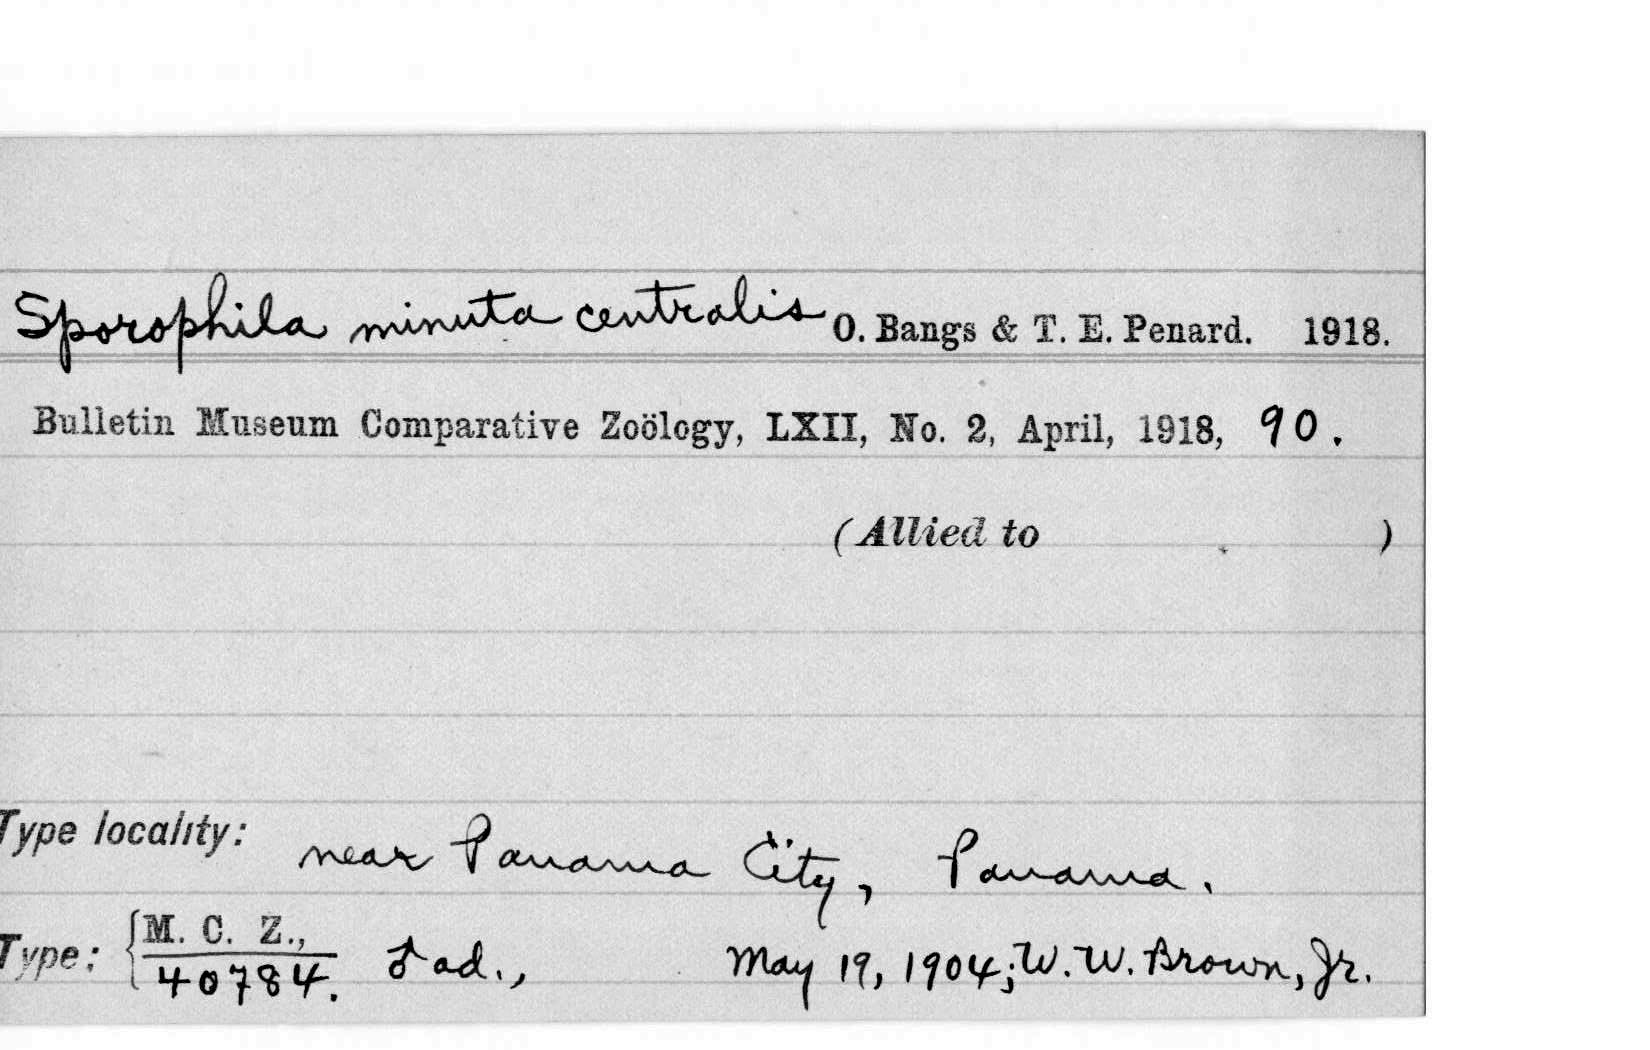 Sporophila minuta centralis O. Bangs & T. E. Penard. 1918.
Bulletin Museum Comparative Zoölogy, LXII, No. 2, April, 1918, 90.
(Allied to )
Type locality: near Panama City, Panama.
Type: { M. C. Z., ♂ ad., May 19, 1904; W. W. Brown, Jr.
40784.